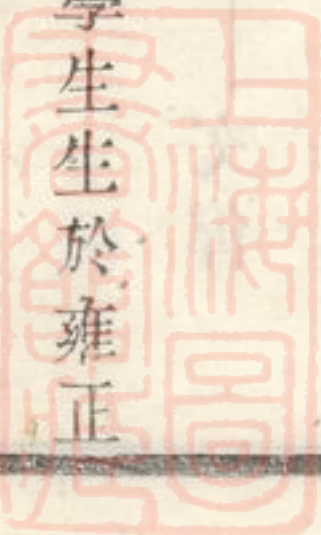 學生生於雍正
上海圖書館藏